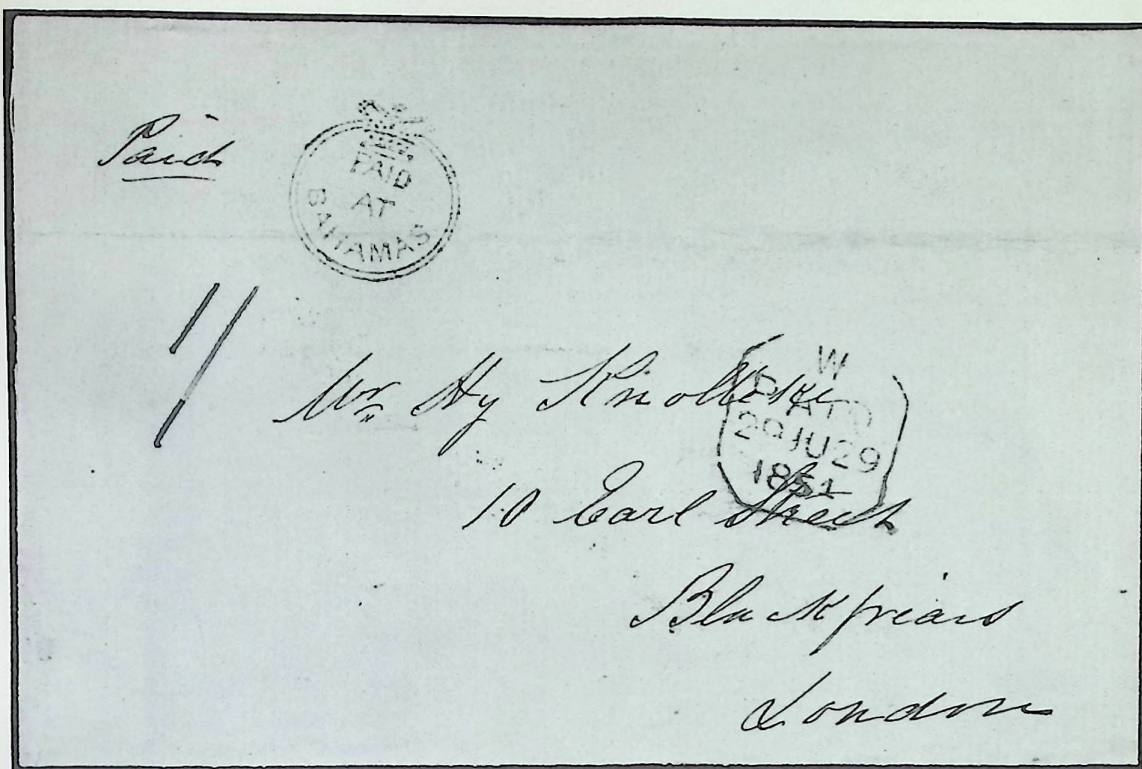 Paid
PAID
AT
BAHAMAS
1/
Mr Hy
W
PAID
29 JU 29
1851
10 Earl Street
Blackfriars
London